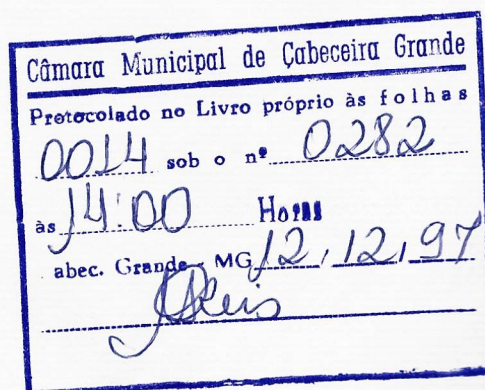 Câmara Municipal de Cabeceira Grande
Protocolado no Livro próprio às folhas
0014 sob o nº 0282
às 14:00 Horas
abec. Grande - MG 12, 12, 97
Reis